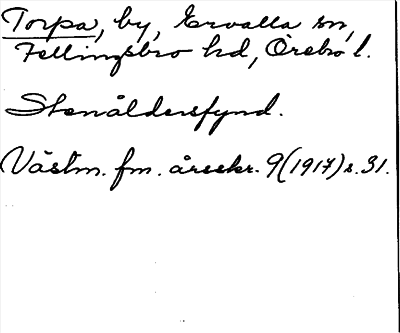 Torpa, by, Ervalla sn,
Fellingsbro hd, Örebro l.
Stenåldersfynd.
Västm. fm. årsskr. 9(1917) s. 31.